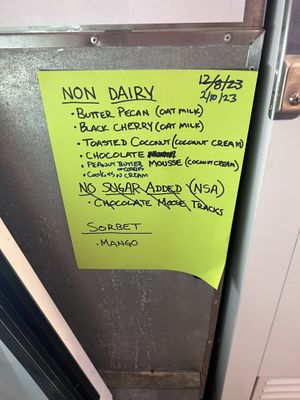 12/8/23
2/10/23
NON DAIRY
• BUTTER PECAN (OAT MILK)
• BLACK CHERRY (OAT MILK)
• TOASTED COCONUT (COCONUT CREAM)
• CHOCOLATE
• PEANUT BUTTER MOUSSE (COCONUT CREAM)
• COOKIES N CREAM
NO SUGAR ADDED (NSA)
• CHOCOLATE MOOSE TRACKS
SORBET
• MANGO